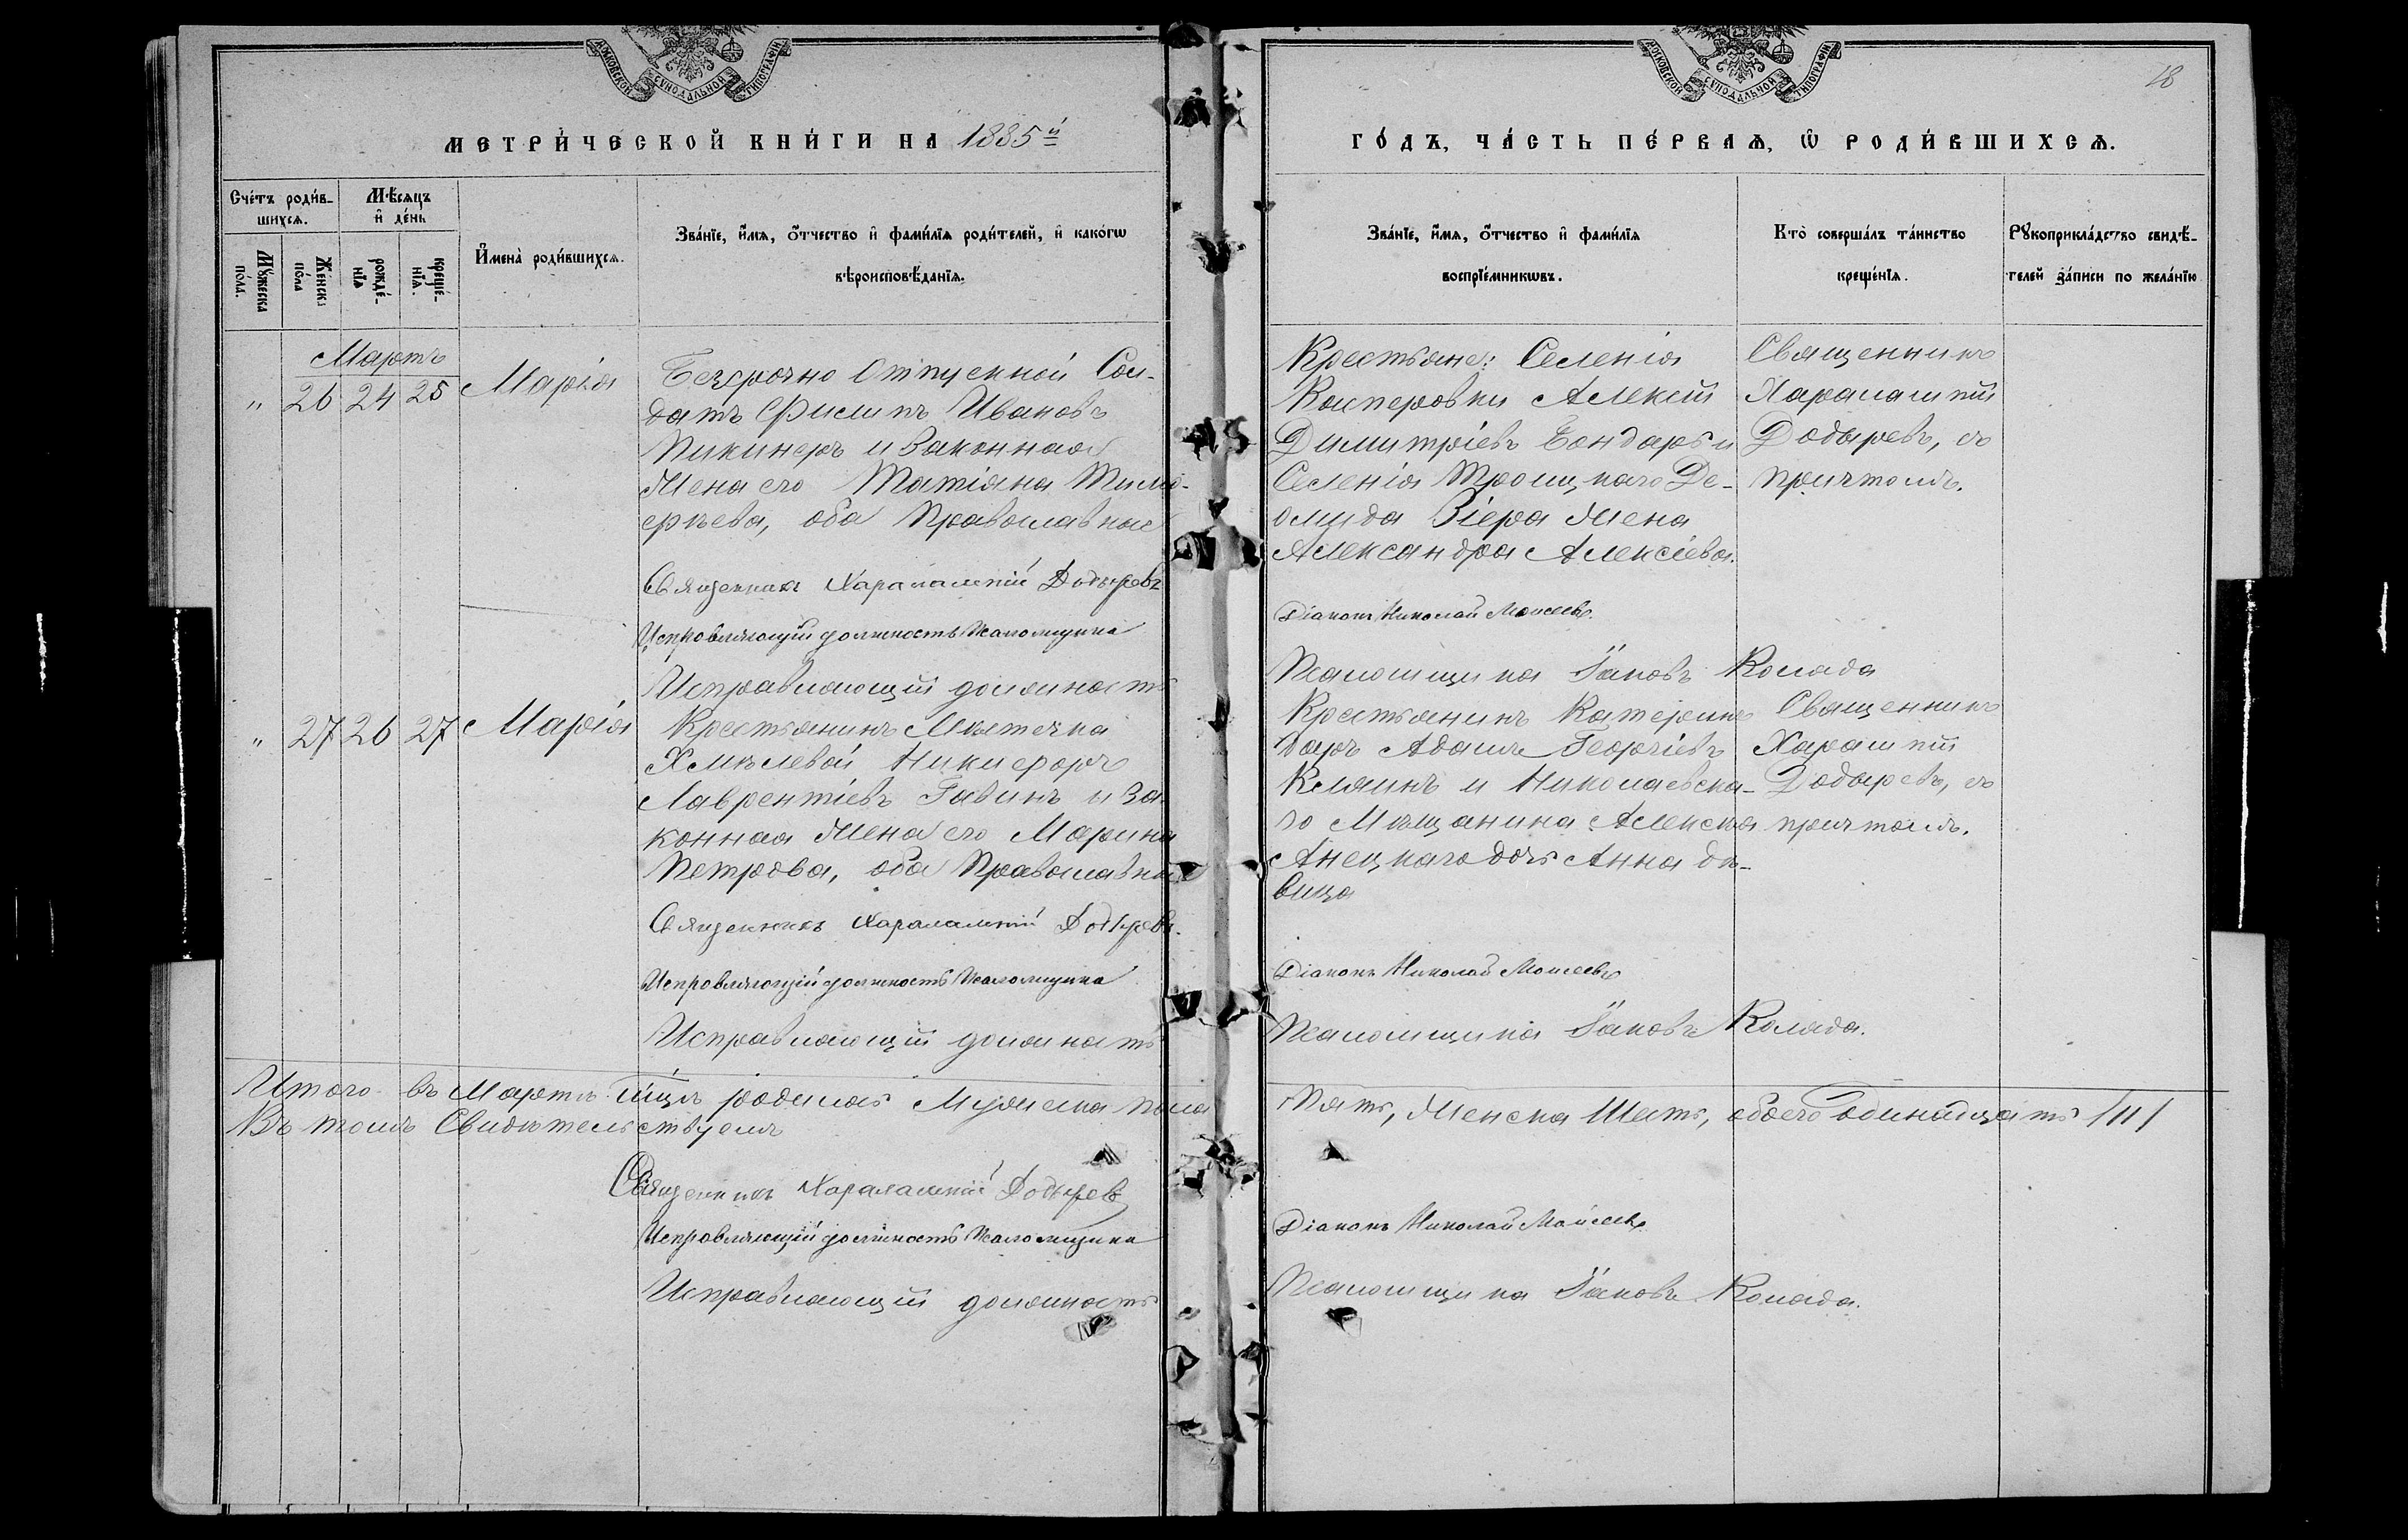 МОСКОВСКОЙ СѴНОДАЛЬНОЙ ТИПОГРАФІИ
МЕТРИ́ЧЕСКОЙ КНИ́ГИ НА 1885й
Сче́тъ роди́в-
шихсѧ.
Мѣ́сѧцъ
и҆ де́нь
И҆мена̀ роди́вшихсѧ.
Зва́нїе, и҆́мѧ, ѻ҆́тчество и҆ фами́лїѧ роди́телей, и҆ како́гѡ
вѣроисповѣ́данїѧ.
Мꙋ́жеска
по́ла.
Же́нска
по́ла
рожде́-
нїѧ
креще́-
нїѧ.
Мартъ
" 26 24 25 Марія
Безсрочно Отпускной Сол-
датъ Филипъ Ивановъ
Пикинеръ и Законная
Жена его Татіана Тимо-
фѣева, оба Православные
Священникъ Харалампій Додыревъ
Исправляющій должность Псаломщика
Исправляющій должность
" 27 26 27 Марія
Крестьянинъ Мѣстечка
Хмѣлевой Никифоръ
Лаврентіевъ Гавинъ и За-
конная Жена его Марина
Петрова, оба Православные
Священникъ Харалампій Додыревъ.
Исправляющій должность Псаломщика
Исправляющій должность
Итого въ Мартѣ м-цѣ родилось Мужеска пола
Въ томъ Свидѣтельствуемъ
Священникъ Харалампій Додыревъ
Исправляющій должность Псаломщика
Исправляющій должность
МОСКОВСКОЙ СѴНОДАЛЬНОЙ ТИПОГРАФІИ
18
ГО́ДЪ, ЧА́СТЬ ПЕ́РВАѦ, Ѡ҆ РОДИ́ВШИХСѦ.
Зва́нїе, и҆́мѧ, ѻ҆́тчество и҆ фами́лїѧ
воспрїе́мникѡвъ.
Кто̀ соверша́лъ та́инство
креще́нїѧ.
Рꙋкоприкла́дство свидѣ́-
телей за́писи по жела́нїю
Крестьяне: Селенія
Камперовки Алексій
Димитріевъ Бондарь и
Селенія Троицкаго Де-
омида Зіера Жена
Александра Алексіева.
Священникъ
Харалампій
Додыревъ, съ
причтомъ.
Діаконъ Николай Моисеевъ.
Псаломщика Іаковъ Коляда
Крестьянинъ Катерин-
даръ Адамъ Георгіевъ
Кляинъ и Николаевска-
го Мѣщанина Алексѣя
Анецкаго дочь Анна дѣ-
вица
Священникъ
Харампій
Додыревъ, съ
причтомъ.
Діаконъ Николай Моисеевъ
Псаломщика Іаковъ Коляда.
Пять, Женска Шесть, обоего Одинадцать /11/
Діаконъ Николай Моисеевъ.
Псаломщика Іаковъ Коляда.